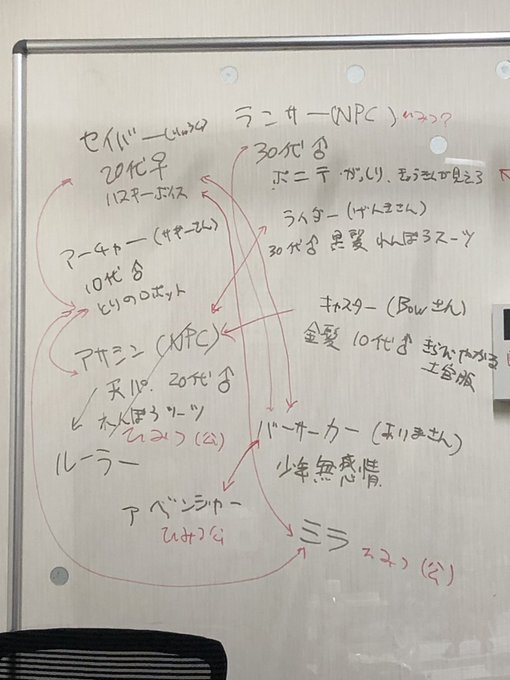 ランサー(NPC)
セイバー
20代♀
ハスキーボイス
30代♂
ポニテ がっしり
ライダー(げんきさん)
30代♂ 黒髪 れんぽうスーツ
アーチャー
10代♂
とりのロボット
キャスター(Bowさん)
金髪 10代♂
アサシン(NPC)
天パ 20代♂
れんぽうスーツ
ひみつ(公)
ルーラー
バーサーカー(ありまさん)
少年無感情
アベンジャー
ひみつ公
ミラ
ひみつ(公)